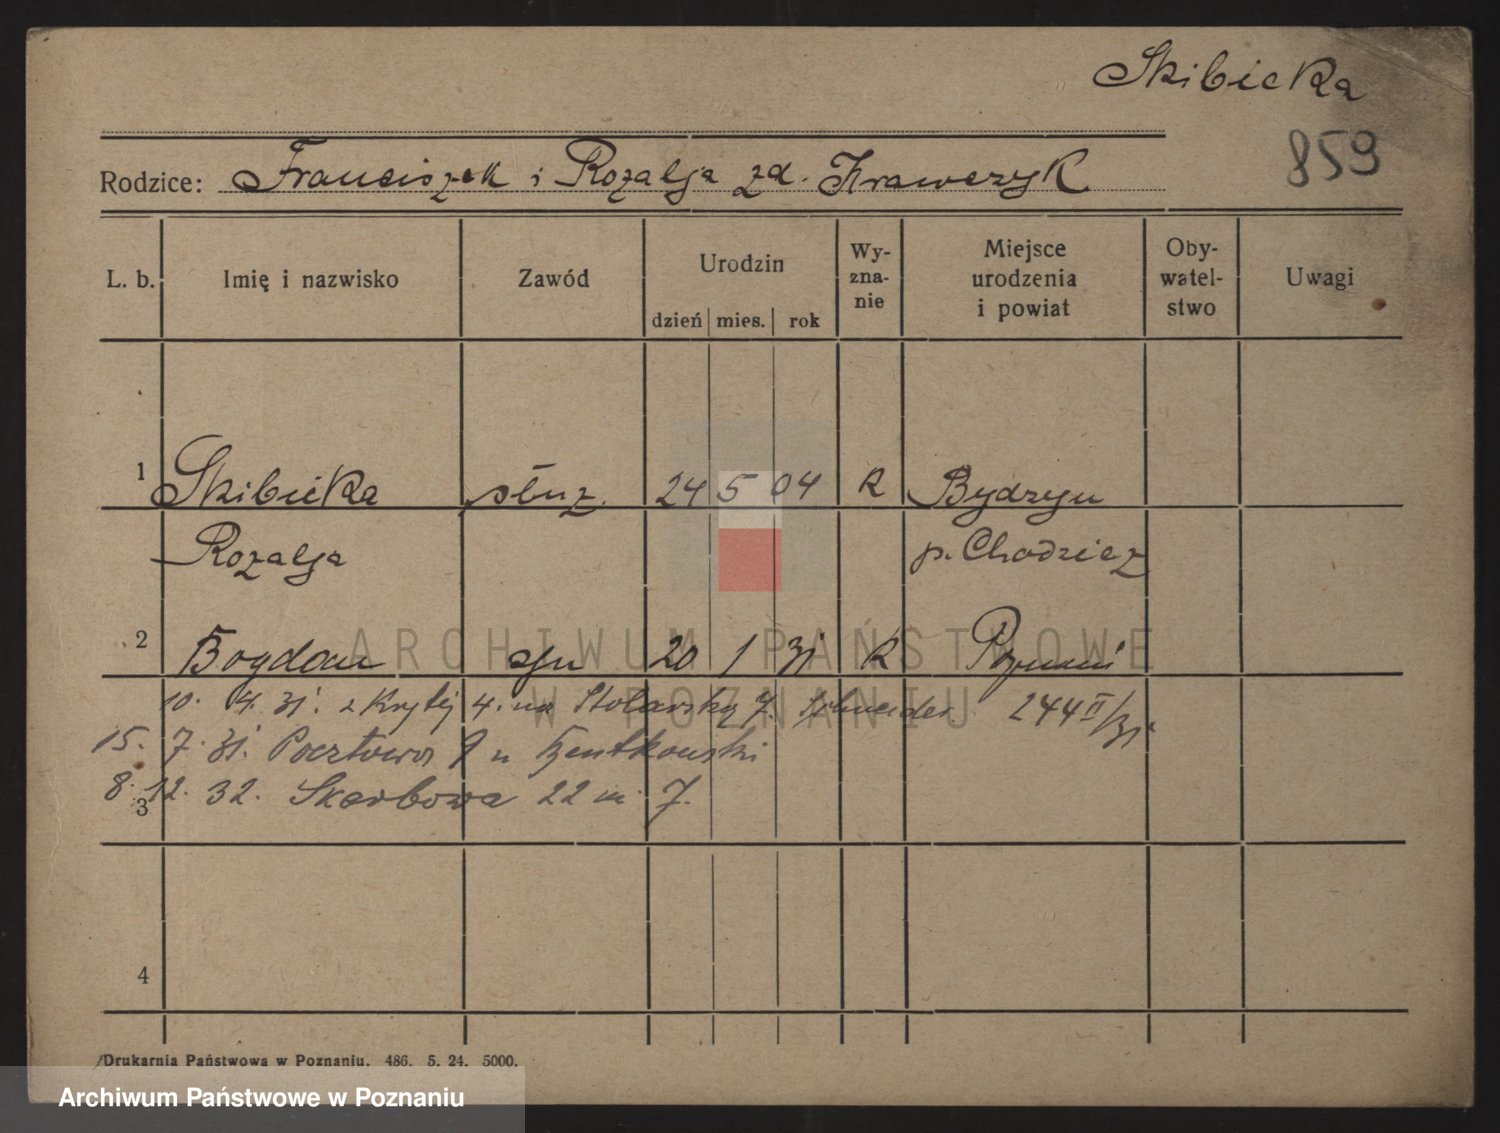 Skibicka
859
Rodzice: Franciszek i Rozalja zd. Krawczyk
L. b. Imię i nazwisko Zawód Urodzin Wy-zna-nie Miejsce urodzenia i powiat Oby-watel-stwo Uwagi
dzień mies. rok
1 Skibicka służ. 24 5 04 K Bydzyn
Rozalja p. Chodzież
2 Bogdan syn 20 1 31 k Poznań
10. 4. 31. z Krytej 4. na Stolarską 7. Schneider 244 II/31
15. 7. 31. Pocztowa u Bentkowski
8. 12. 32. Skarbowa 22 m. 7.
3
4
Drukarnia Państwowa w Poznaniu. 486. 5. 24. 5000.
ARCHIWUM PAŃSTWOWE
W POZNANIU
Archiwum Państwowe w Poznaniu